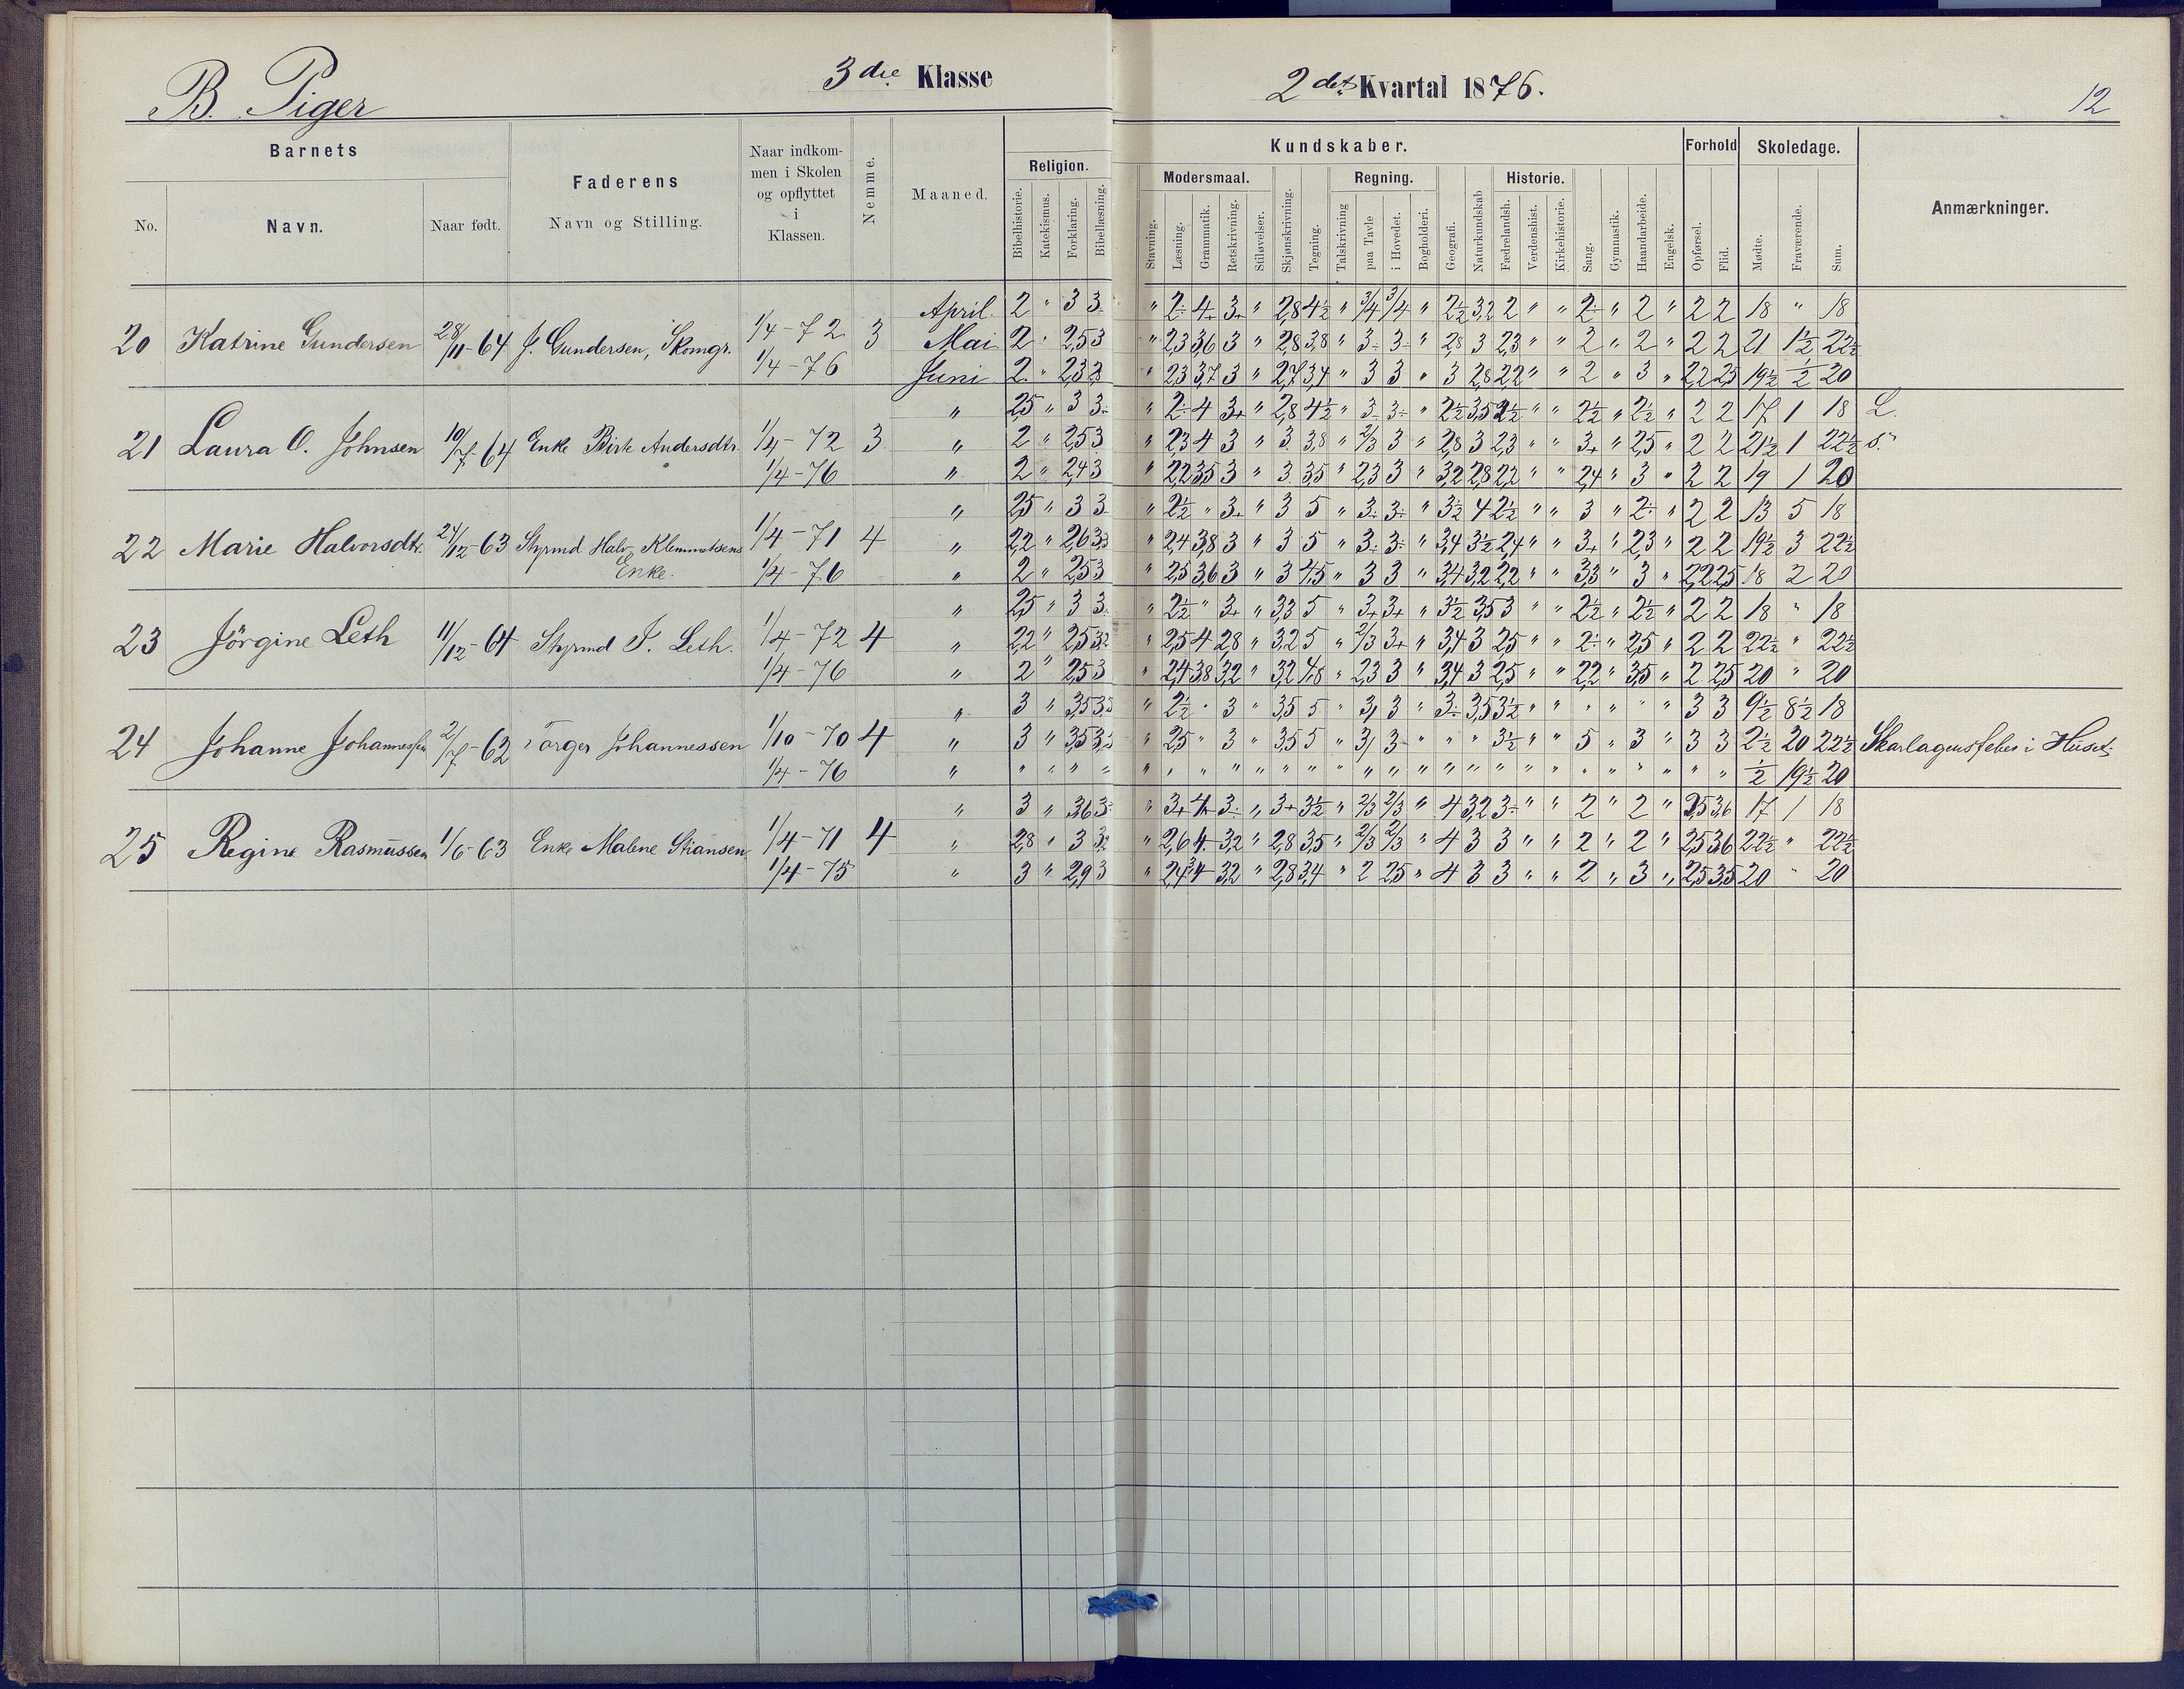 B. Piger
3die Klasse
2det Kvartal 1876.
12
Barnets
No.
Navn.
Naar født.
Faderens
Navn og Stilling.
Naar indkom-
men i Skolen
og opflyttet
i
Klassen.
Nemme.
Maaned.
Kundskaber.
Religion.
Bibelhistorie.
Katekismus.
Forklaring.
Bibellæsning.
Modersmaal.
Stavning.
Læsning.
Grammatik.
Retskrivning.
Stiløvelser.
Skjønskrivning.
Tegning.
Regning.
Talskrivning
paa Tavle
i Hovedet.
Bogholderi.
Geografi.
Naturkundskab
Historie.
Fædrelandsh.
Verdenshist.
Kirkehistorie.
Sang.
Gymnastik.
Haandarbeide.
Engelsk.
Forhold
Opførsel.
Flid.
Skoledage.
Mødte.
Fraværende.
Sum.
Anmærkninger.
20 Katrine Gundersen 28/11-64 J. Gundersen, Skomgr. 1/4-72 3
1/4-76
April 2 " 3 3 " 2÷ 4+ 3+ " 2,8 4½ " 3/4 3/4 " 2½ 3,2 2 " " 2÷ " 2 " 2 2 18 " 18
Mai 2 " 2,5 3 " 2,3 3,6 3 " 2,8 3,8 " 3÷ 3÷ " 2,8 3 2,3 " " 2 " 2 " 2 2 21 1½ 22½
Juni 2 " 2,3 3 " 2,3 3,7 3 " 2,7 3,4 " 3 3 " 3 2,8 2,2 " " 2 " 3 " 2,2 2,5 19½ ½ 20
21 Laura O. Johnsen 10/7-64 Enke Birte Andersdtr. 1/4-72 3
1/4-76
" 2,5 " 3 3÷ " 2÷ 4 3+ " 2,8 4½ " 3÷ 3÷ " 2½ 3,5 2½ " " 2½ " 2½ " 2 2 17 1 18 L.
" 2 " 2,5 3 " 2,3 4 3 " 3 3,8 " 2/3 3 " 2,8 3 2,3 " " 3+ " 2,5 " 2 2 21½ 1 22½ s.
" 2 " 2,4 3 " 2,2 3,5 3 " 3 3,5 " 2,3 3 " 3,2 2,8 2,2 " " 2,4 " 3 " 2 2 19 1 20
22 Marie Halvorsdtr. 24/12-63 Styrmd Halv. Klemmetsens
Enke.
1/4-71 4
1/4-76
" 2,5 " 3 3 " 2½ " 3+ " 3 5 " 3÷ 3÷ " 3½ 4 2½ " " 3 " 2÷ " 2 2 13 5 18
" 2,2 " 2,6 3,3 " 2,4 3,8 3 " 3 5 " 3÷ 3÷ " 3,4 3½ 2,4 " " 3+ " 2,3 " 2 2 19½ 3 22½
" 2 " 2,5 3 " 2,5 3,6 3 " 3 4,5 " 3 3 " 3,4 3,2 2,2 " " 3,3 " 3 " 2,2 2,5 18 2 20
23 Jörgine Leth 11/12-64 Styrmd J. Leth. 1/4-72 4
1/4-76
" 2,5 " 3 3 " 2½ " 3+ " 3,3 5 " 3+ 3+ " 3½ 3,5 3 " " 2½ " 2½ " 2 2 18 " 18
" 2,2 " 2,5 3,2 " 2,5 4 2,8 " 3,2 5 " 2/3 3+ " 3,4 3 2,5 " " 2÷ " 2,5 " 2 2 22½ " 22½
" 2 " 2,5 3 " 2,4 3,8 3,2 " 3,2 4,8 " 2,3 3 " 3,4 3 2,5 " " 2,2 " 3,5 " 2 2,5 20 " 20
24 Johanne Johannessen 2/7-62 Torger Johannessen 1/10-70 4
1/4-76
" 3 " 3,5 3,5 " 2½ " 3 " 3,5 5 " 3, 3 " 3÷ 3,5 3½ " " " " " " 3 3 9½ 8½ 18
" 3 " 3,5 3,5 " 2,5 " 3 " 3,5 5 " 3, 3 " " " 3½ " " 5 " 3 " 3 3 2½ 20 22½ Skarlagensfeber i Huset
" " " " " " " " " " " " " " " " " " " " " " " " " " " " ½ 19½ 20
25 Regine Rasmussen 1/6-63 Enke Malene Stiansen 1/4-71 4
1/4-75
" 3 " 3,6 3÷ " 3+ 4+ 3÷ " 3+ 3½ " 2/3 2/3 " 4 3,2 3÷ " " 2 " 2 " 2,5 3,6 17 1 18
" 2,8 " 3 3,2 " 2,6 4 3,2 " 2,8 3,5 " 2/3 2/3 " 4 3 3 " " 2 " 2 " 2,5 3,6 22½ " 22½
" 3 " 2,9 3 " 2,4 3,4 3,2 " 2,8 3,4 " 2 2,5 " 4 3 3 " " 2 " 3 " 2,5 3,5 20 " 20